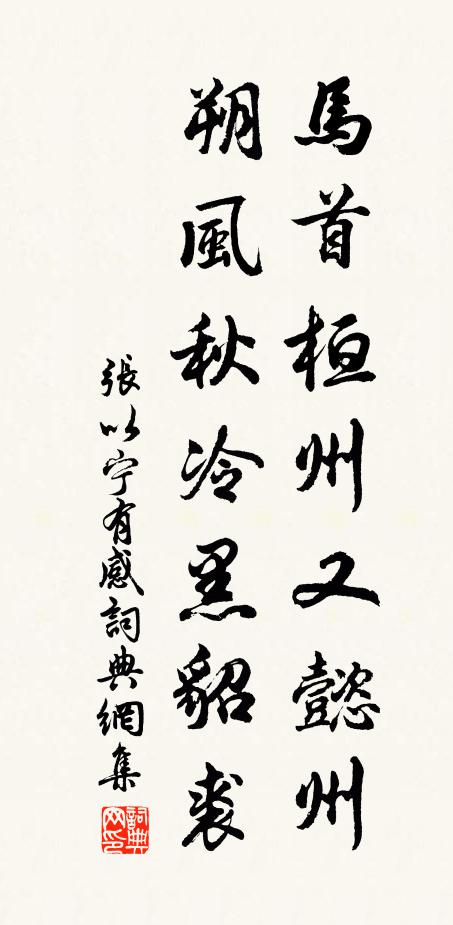 馬首桓州又懿州
朔風秋冷黑貂裘
張以宁有感詞典網集
詞典网印